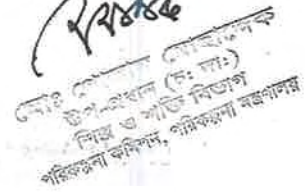 মোঃ মোহাদ্দেক
উপ-প্রধান (চঃ দাঃ)
শিল্প ও শক্তি বিভাগ
পরিকল্পনা কমিশন, পরিকল্পনা মন্ত্রণালয়